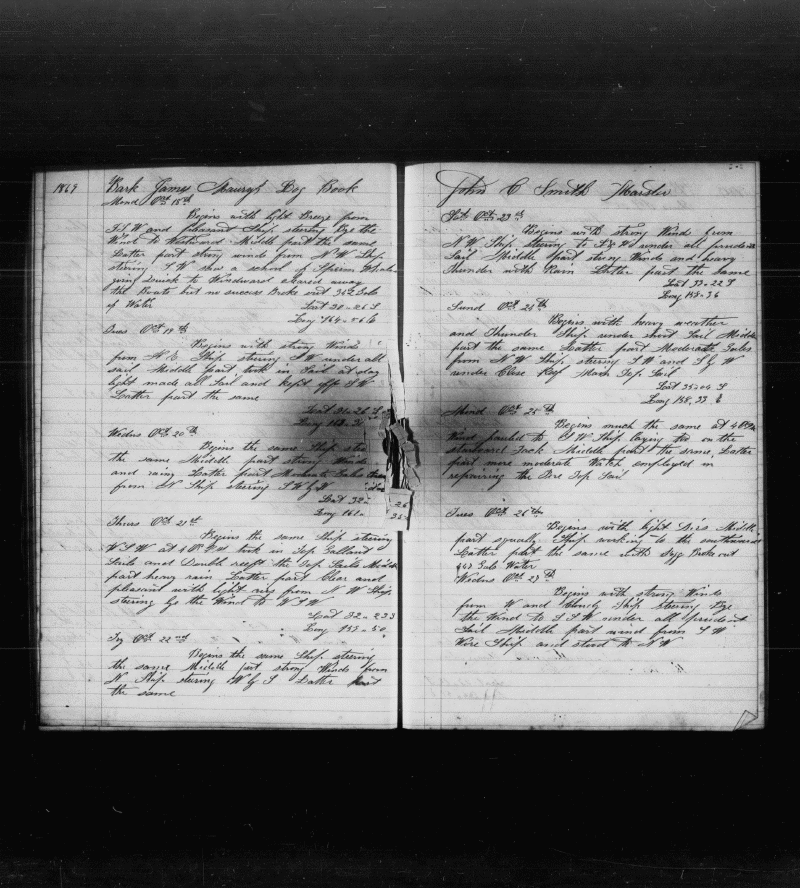 1869
Bark James Maurys Log Book
Mond Oct 18th
Begins with light Breeze from
S.S.W and pleasant Ship steering Bye the
Wind to Westward Middle part the same
Latter part strong winds from N.W Ship
steering S.W saw a school of Sperm Whales
going Quick to Windward
the Boats but no success Broke out Gals
of Water
Lat 30=26 S
Long 164=56
Tues Oct 19th
Begins with strong Wind
from N. Ship steering S.W under all
sail Middle part took in Sail at day
light made all Sail and kept off S.W
Latter part the same
Lat 31=26 S
Long 163
Wednes Oct 20th
Begins the same Ship
the same Middle part strong Winds
and rainy Latter part
from N Ship steering S.W
Lat 32=
Long 161=
26
Thurs Oct 21st
Begins the same Ship steering
W.S.W at 4 took in Top Gallant
Sails and Double reeft the Top Sails Middle
part heavy rain Latter part Clear and
pleasant with light from N.W Ship
steering by the Wind to W.S.W
Lat 32=
Long
Fry Oct 22nd
Begins the same Ship steering
the same Middle part strong Winds from
N Ship steering Latter part
the same
John C Smith Master
Sat Oct 23th
Begins with strong Wind from
N.W Ship steering to under all prudent
Sail Middle part strong Winds and heavy
thunder with Rain Latter part the same
Lat 33=22 S
Long 158=36
Sund Oct 24th
Begins with heavy weather
and Thunder Ship under short Sail Middle
part the same Latter part Moderate Gales
from N.W Ship steering S.W and
under Close Reef Main Top Sail
Lat 35=04 S
Long 158,33
Mond Oct 25th
Begins much the same at 4
Wind hauled to S.W Ship laying too on the
starboard Tack Middle part the same Latter
part more moderate Watch employed in
repairing the Fore Top Sail
Tues Oct 26th
Begins with light Middle
part squally Ship working to the southward
Latter part the same with Broke out
Gals Water
Wednes Oct 27th
Begins with strong Winds
from W and Ship steering Bye
the Wind to S.S.W under all prudent
Sail Middle part wind from S.W
Wore Ship and stood to N.W